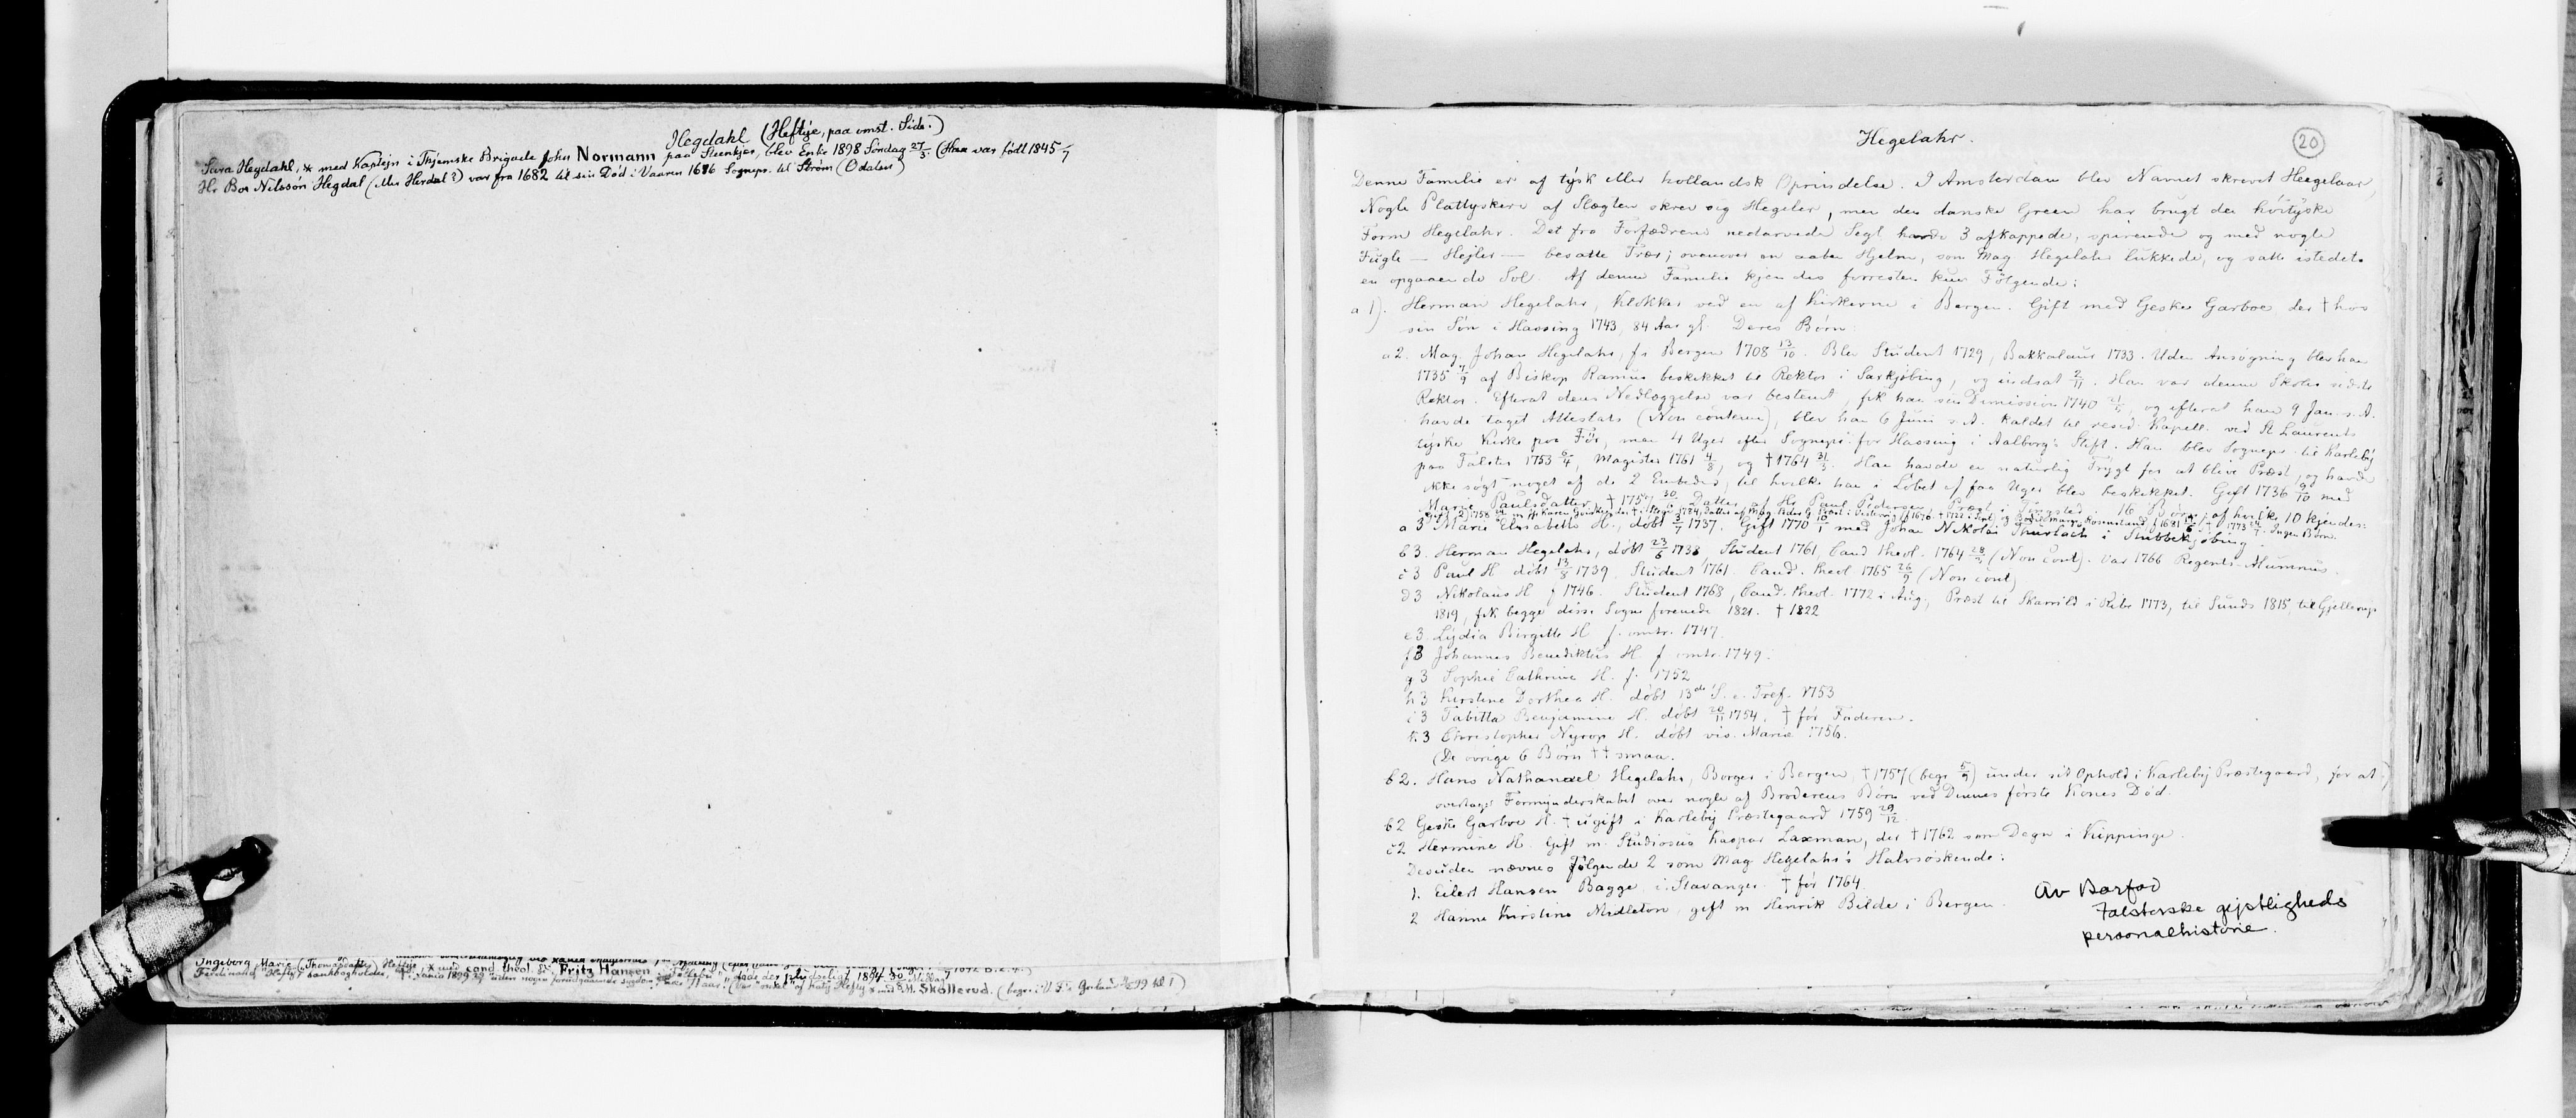 Hegdahl (Heftije, paa omst. Side.)
Sara Hegdahl, * med Kaptejn i Thjemske Brigade John Normann paa Steenkjer, blev Enke 1898 Söndag 27/3. (Han var födt 1845
Hr. Boa Nilssön Hegdal (eller Herdal?) var fra 1682 til sin Död i Vaaren 1686 Sognepr. til Ström (Odalen)
Ingeborg Marie (Thomasdatter) Heftije, * med cand. theol. Fritz Hansen
Ferdinand Heftij bankbogholder, döde der pludseligt 1894 30
Skøllerud.
20
Hegelahr.
Denne Familie er af tÿsk eller hollandsk Oprindelse. I Amsterdam blev Navnet skrevet Heegelaar,
Nogle Plattyskere af Slægten skrev sig Hegeler, men den danske Green har brugt den höitÿske
Form Hegelahr. Det fra Forfædrene nedarvede Segl havde 3 afkappede, spirende og med nogle
Fugle — Hejler — besatte Træer; ovenover en aaben Hjelm, som Mag. Hegelahr lukkede, og satte istedet
en opgaaende Sol. Af denne Familie kjendes forresten kun Fölgende:
a 1). Herman Hegelahr, Klokker ved en af Kirkerne i Bergen. Gift med Geske Garboe der † hos
sin Sön i Hassing 1743, 84 Aar gl. Deres Børn:
a 2. Mag. Johan Hegelahr, f. i Bergen 1708 13/10. Blev Student 1729, Bakkalaur 1733. Uden Ansøgning blev han
1735 7/9 af Biskop Ramus beskikket til Rektor i Saxkjöbing, og indsat 2/11. Han var denne Skoles sidste
Rektor. Efterat dens Nedlæggelse var bestemt, fik han sin Dimission 1740 og efterat han 9 Jan. s. A.
havde taget Attestats (Non contemn.), blev han 6 Juni s. A. kaldet til resid. Kapell. ved St Laurents
tÿske Kirke paa För, men 4 Uger efter Sognepr. for Hassing i Aalborg's Stift. Han blev Sognepr. til Karlebÿ
paa Falster 1753 6/4, Magister 1761 4/8, og † 1764 31/3. Han havde en naturlig Frygt for at blive Præst, og havde
ikke søgt noget af de 2 Embeder, til hvilke han i Löbet af faa Uger blev beskikket. Gift 1736 9/10 med
Marie Paulsdatter, † 30 Datter af Hr. Paul Pedersen, Præst i Ringsted. 16 Børn, af hvilke 10 kjendes:
a 3 Marie Elisabeth H., döbt 3/7 1737. Gift 1770 10/1 med Johan Nikolai Thurlach i Stubbekjøbing.
b 3. Herman Hegelahr, döbt 23/6 1738, Student 1761, Cand. theol. 1764 28/3 (Non cont.). Var 1766 Regents-Alumnus.
c 3 Paul H. döbt 13/8 1739. Student 1761. Cand. theol. 1765 26/9 (Non cont.)
d 3 Nikolaus H. f. 1746. Student 1768, Cand. theol. 1772 i Aug., Præst til Skarrild i Ribe 1773, til Sunds 1815, til Gjellerup
1819, fik begge disse Sogne forenede 1821. † 1822
e 3. Lÿdia Birgitte H. f. omtr. 1747.
f 3 Johannes Benediktus H. f. omtr. 1749.
g 3 Sophie Cathrine H. f. 1752
h 3 Kirstine Dorthea H. döbt 13de S. e. Tref. 1753
i 3 Tabitta Benjamine H. döbt 20/11 1754. † för Faderen.
k 3 Christopher Nyrop H. döbt vis. Mariæ 1756.
(De övrige 6 Børn †† smaa.
b 2. Hans Nathanael Hegelahr, Borger i Bergen, † 1757 (begr. 5/9) under sit Ophold i Karlebÿ Præstegaard, for at
overtage Formynderskabet over nogle af Broderens Børn ved Dennes förste Kones Död.
b 2 Geske Garboe H. † ugift i Karlebÿ Præstegaard 1759 29/12.
c 2 Hermine H. Gift m. Studiosus Kaspar Laxman, der † 1762 som Degn i Kippinge.
Desuden nævnes Følgende 2 som Mag. Hegelahr's Halvsöskende:
1. Eilert Hansen Bagge, i Stavanger. † för 1764.
2 Hanne Kirstine Midleton, gift m. Henrik Bilde i Bergen.
Av Barfod
Falsterske gejstligheds
personalhistorie.